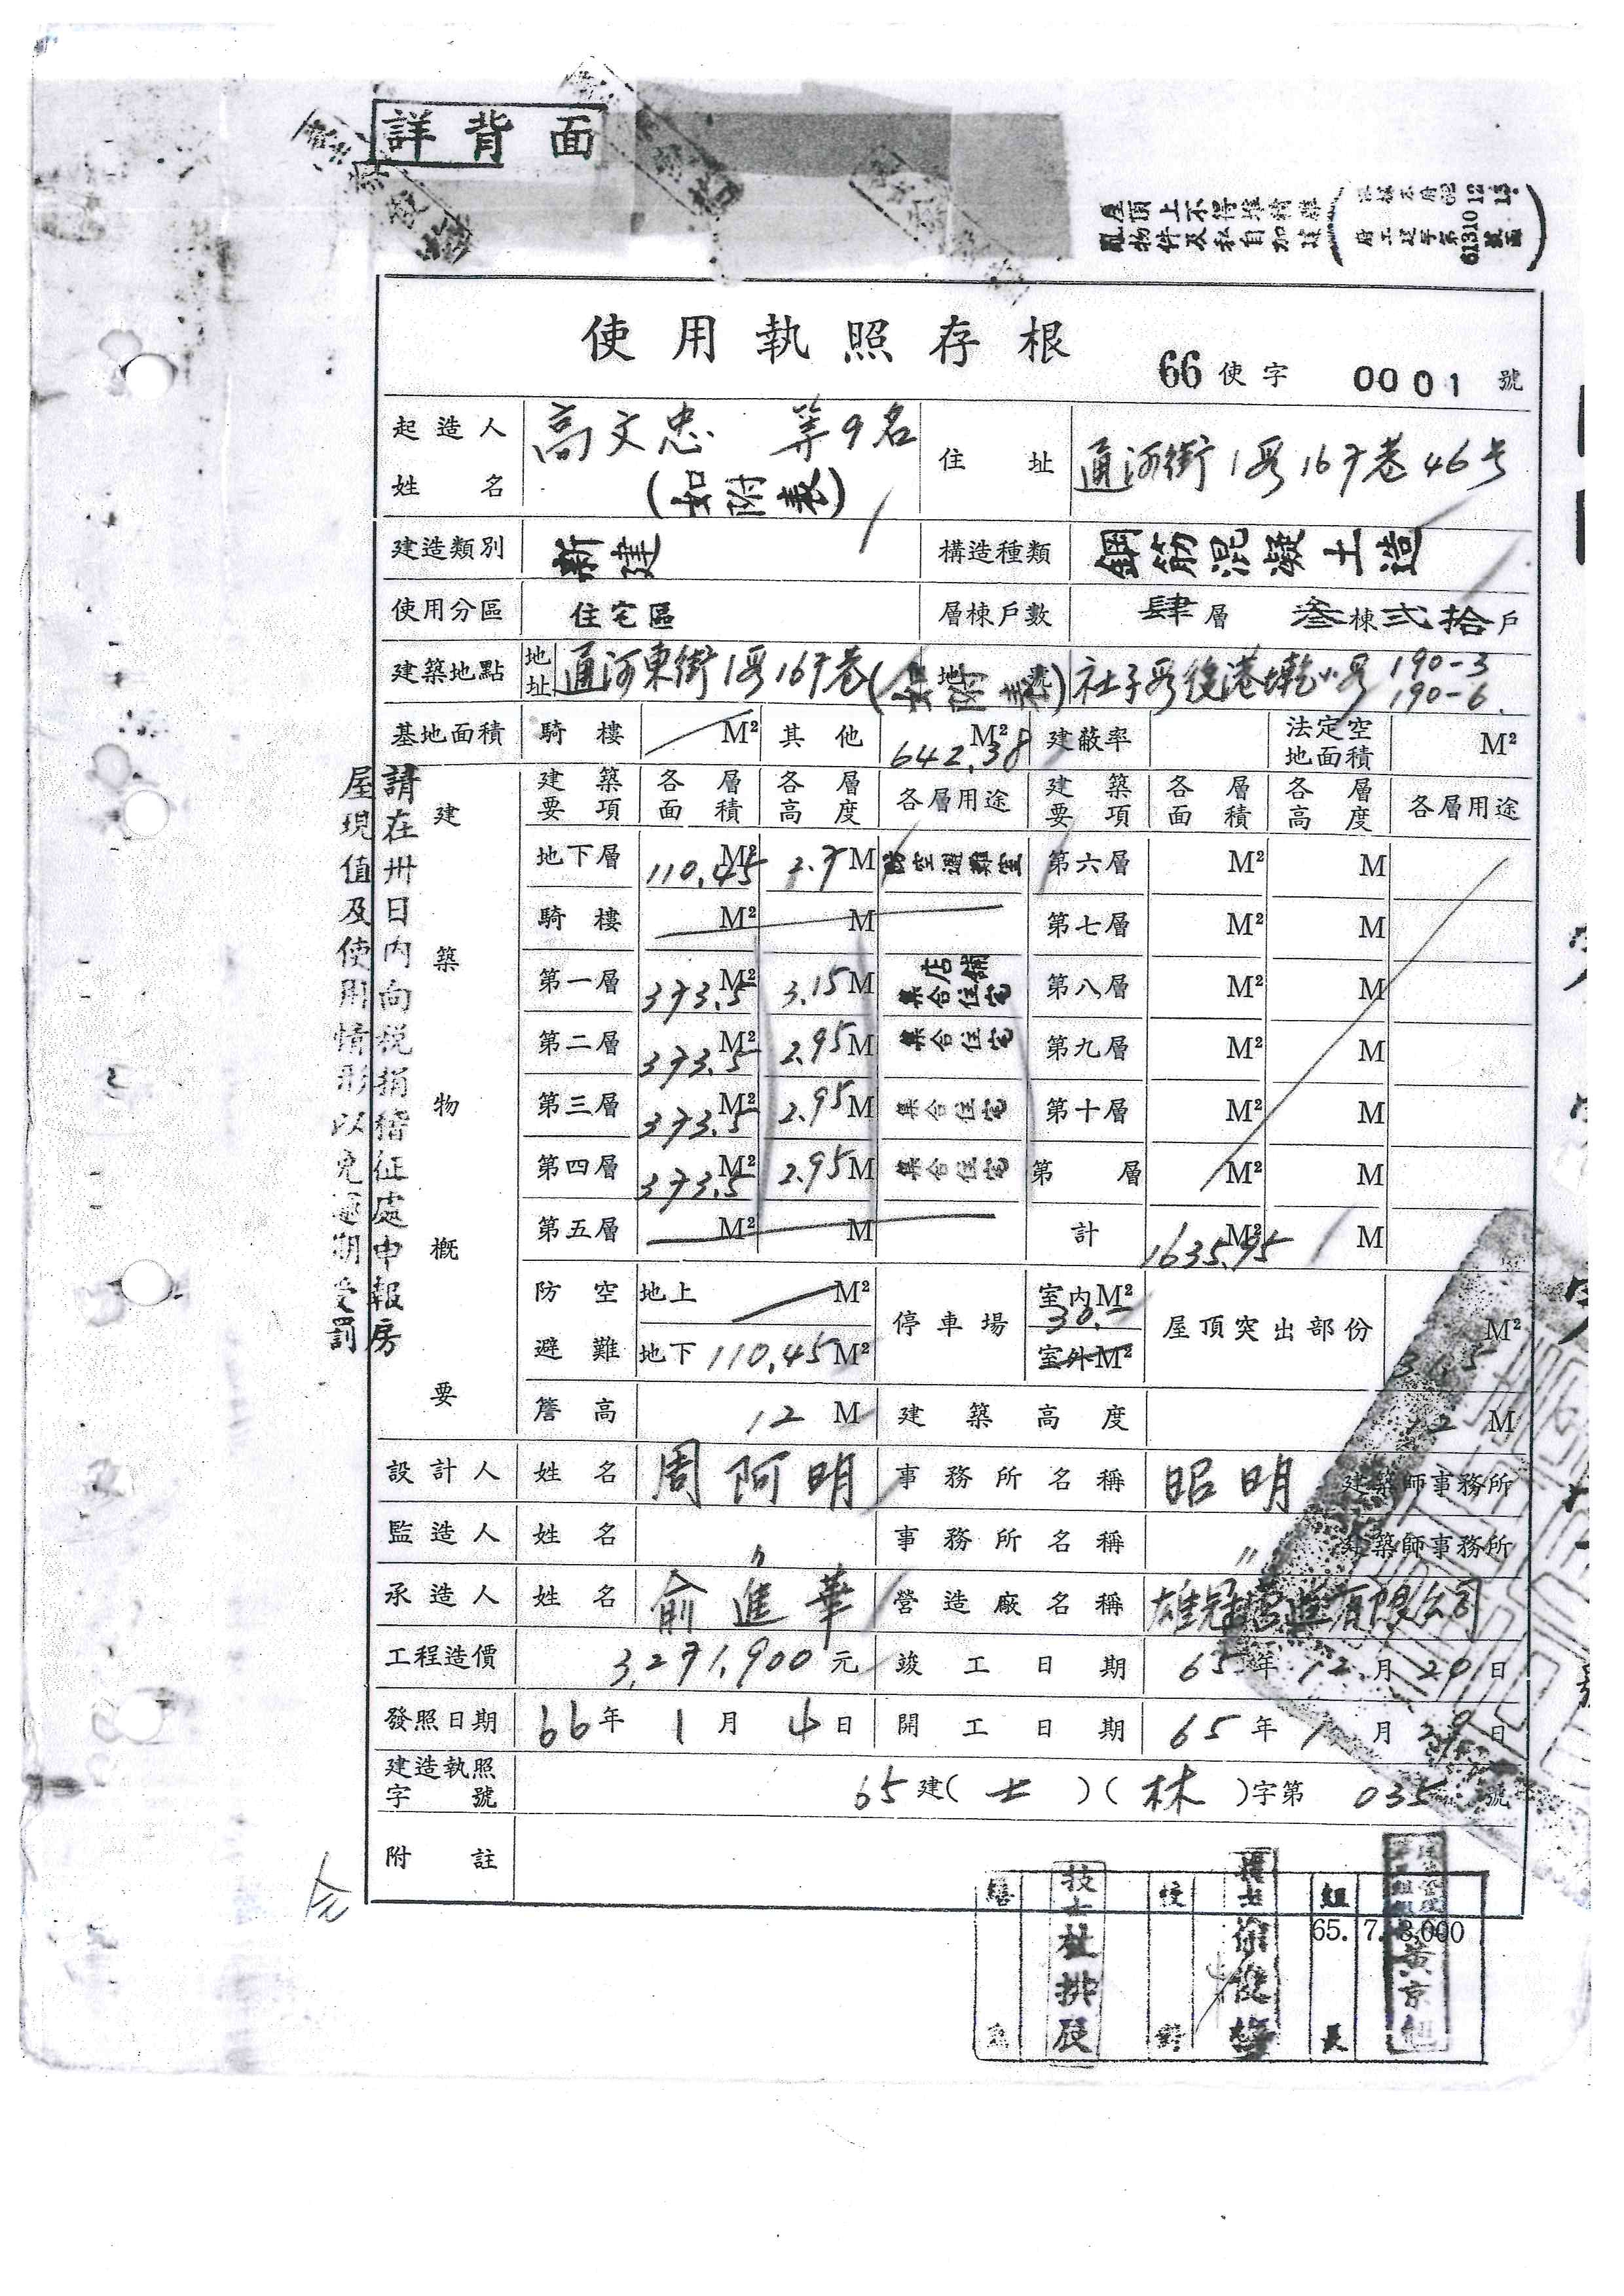 詳背面
屋頂上不得堆積雜
亂物件及私自加建
府工建字第61310號函
使用執照存根
66使字 0001 號
起造人姓名 高文忠 等9名 (如附表) 住址 通河街1段167巷46号
建造類別 新建 構造種類 鋼筋混凝土造
使用分區 住宅區 層棟戶數 肆層 叁棟 弍拾戶
建築地點 地址 通河東街1段167巷(如附表) 地號 社子段後港墘小段 190-3 190-6
基地面積 騎樓 M² 其他 642.38 M² 建蔽率 法定空地面積 M²
建築物概要
建築要項 各層面積 各層高度 各層用途 建築要項 各層面積 各層高度 各層用途
地下層 110.45 M² 2.7 M 防空避難室 第六層 M² M
騎樓 M² M 第七層 M² M
第一層 373.5 M² 3.15 M 店舖 集合住宅 第八層 M² M
第二層 373.5 M² 2.95 M 集合住宅 第九層 M² M
第三層 373.5 M² 2.95 M 集合住宅 第十層 M² M
第四層 373.5 M² 2.95 M 集合住宅 第 層 M² M
第五層 M² M 計 M² M
防空避難 地上 M² 停車場 室內 M² 30.- 屋頂突出部份 M²
地下 110.45 M² 室外 M²
簷高 12 M 建築高度 12 M
設計人 姓名 周阿明 事務所名稱 昭明 建築師事務所
監造人 姓名 〃 事務所名稱 〃 建築師事務所
承造人 姓名 俞進華 營造廠名稱 雄冠營造有限公司
工程造價 3,271,900 元 竣工日期 65年12月20日
發照日期 66年1月4日 開工日期 65年1月29日
建造執照字號 65建(士)(林)字第035號
附註
請在卅日內向稅捐稽征處申報房
屋現值及使用情形以免逾期受罰
65. 7. 3,000
技士 杜排
校對 技士 徐
組長 黃京